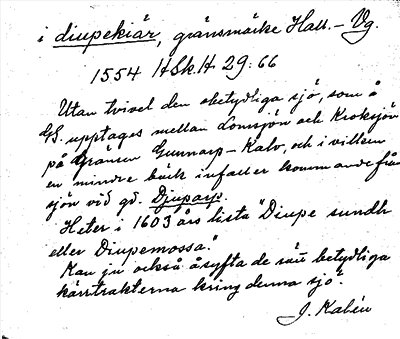 i diupekiär, gränsmärke Hall. – Vg.
1554 HSkH 29: 66
Utan tvivel den obetydliga sjö, som å
GS. upptages mellan Lomsjön och Kroksjön
på Gränsen Gunnarp – Kalv, och i vilken
en mindre bäck infaller kommande från
sjön vid gd. Djupay.
Heter i 1603 års lista "Diupe sundh
eller Diupemossa."
Kan ju också åsyfta de sän betydliga
kärrtrakterna kring denna sjö.
J. Kalén